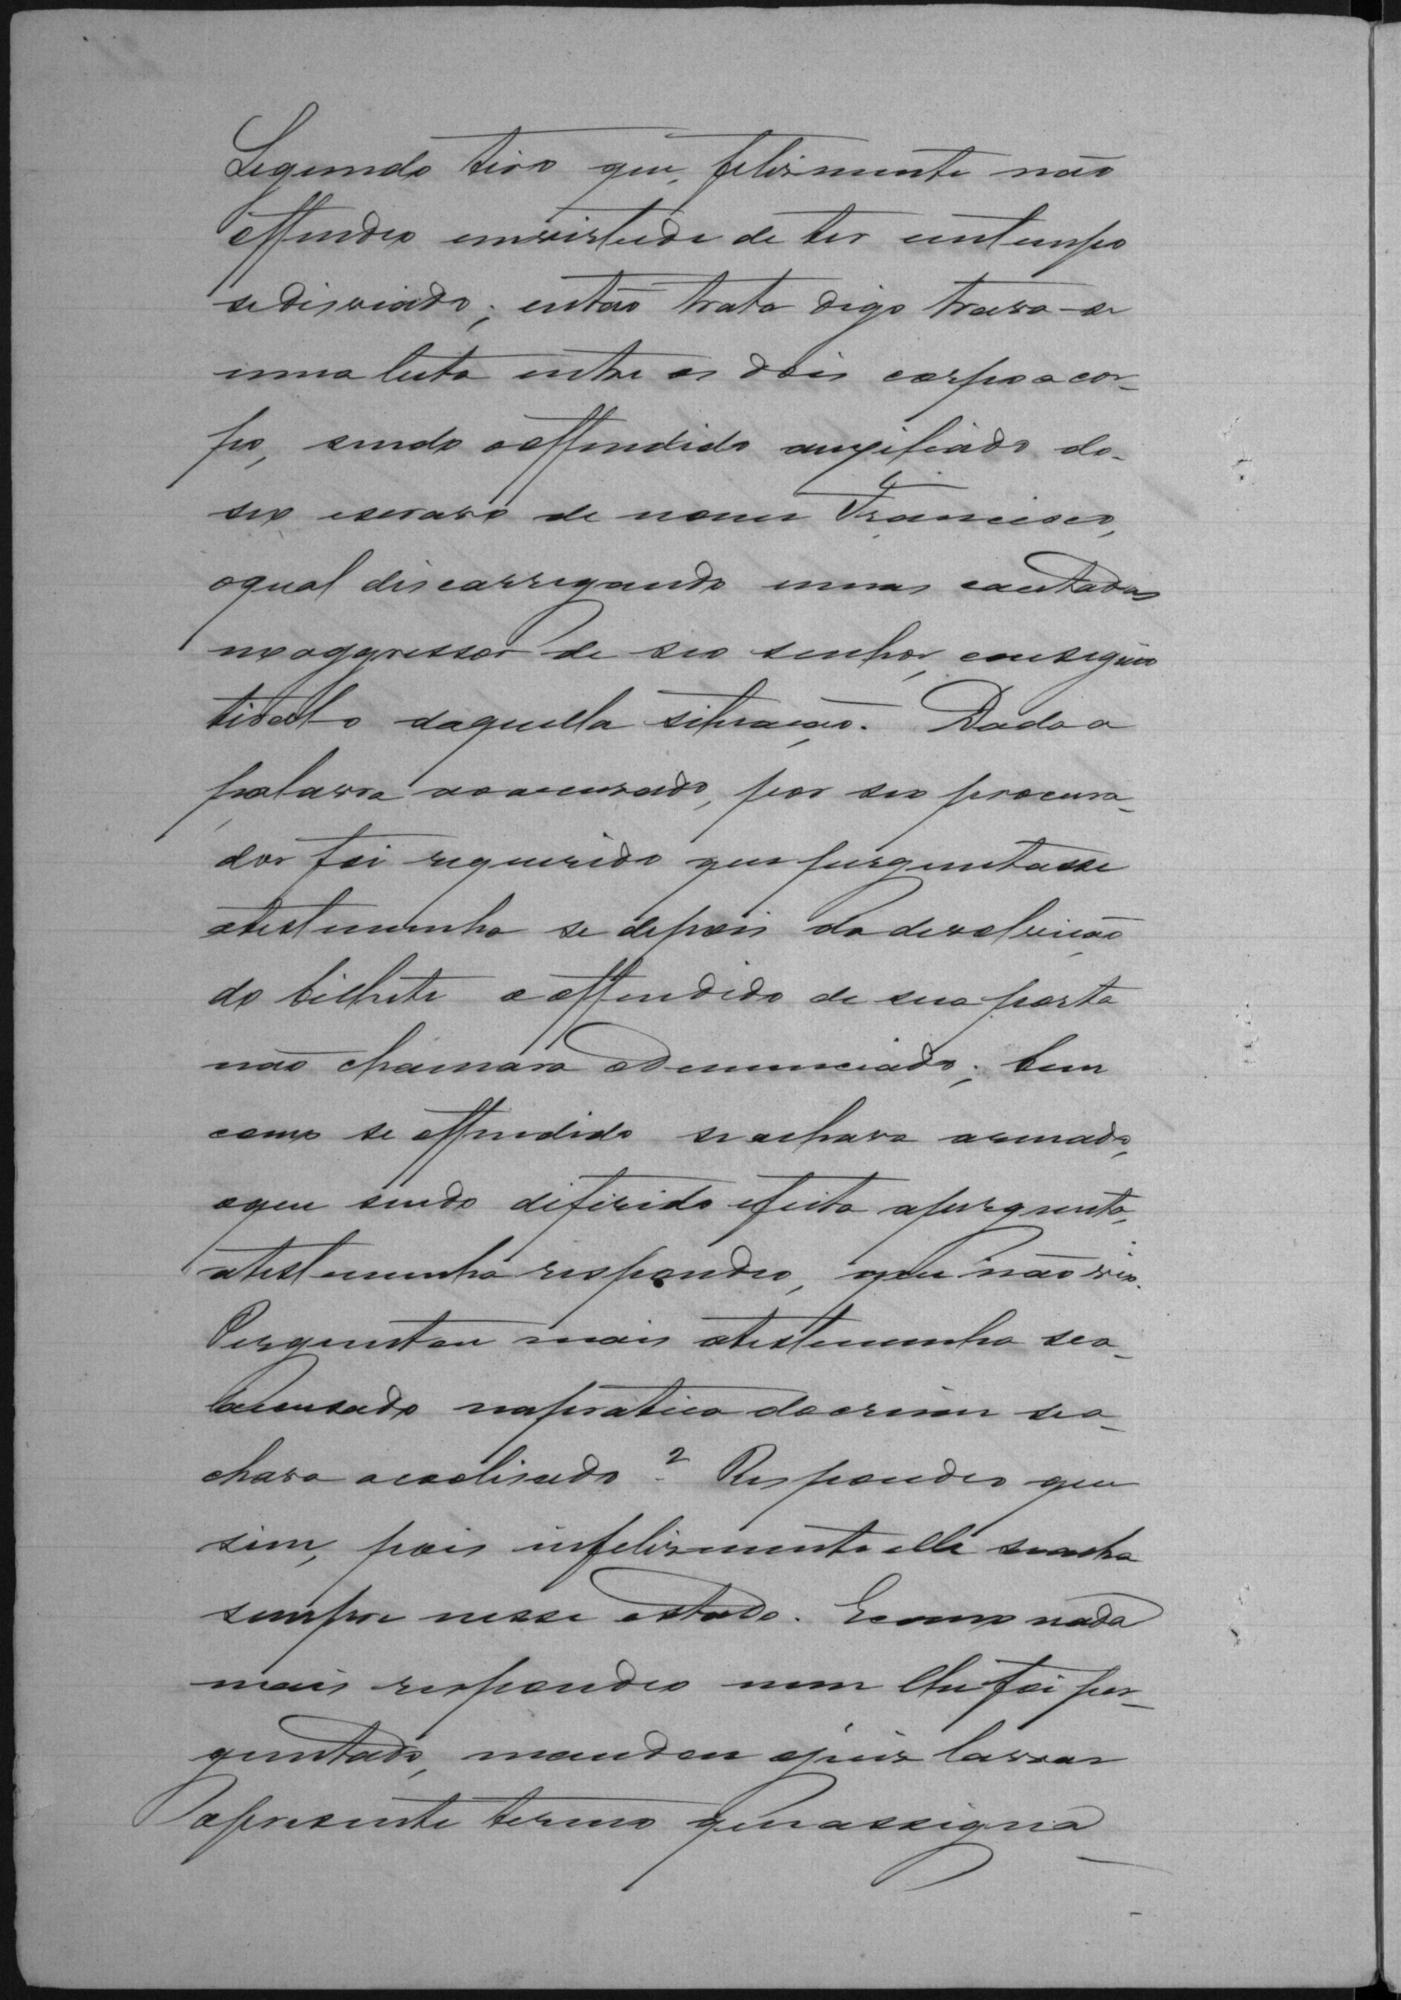 Segundo tiro que, felismente não
offendeo emvirtude de ter emtempo
sedisviado; então trata digo trava-se
uma luta entre os dois corpo a cor-
po, sendo o offendido auxiliado do
seo escravo de nome Francisco,
oqual discarregando umas cautadas
no aggressor de seo senhor, consegiuo
tiral-o daquella situação. Dada a
palavra ao acusado, por seo procura-
dor foi requerido que perguntasse
atestemunha se depois da devolvição
do bilhete o offendido de sua porta
não chamara o denunciado; bem
como se offendido se achava armado,
oque sendo diferido efeita apergunta,
atestemunha respondeo, que não vio.
Perguntou mais atestemunha seo-
acusado napratica docrime sea-
chava acoolisado? Respondeo que
sim, pois infelismente elle seacha
sempre nesse estado. Ecomo nada
mais respondeo nem lhe foi per-
guntado, mandou ojuis lavrar
opresente termo que assigna